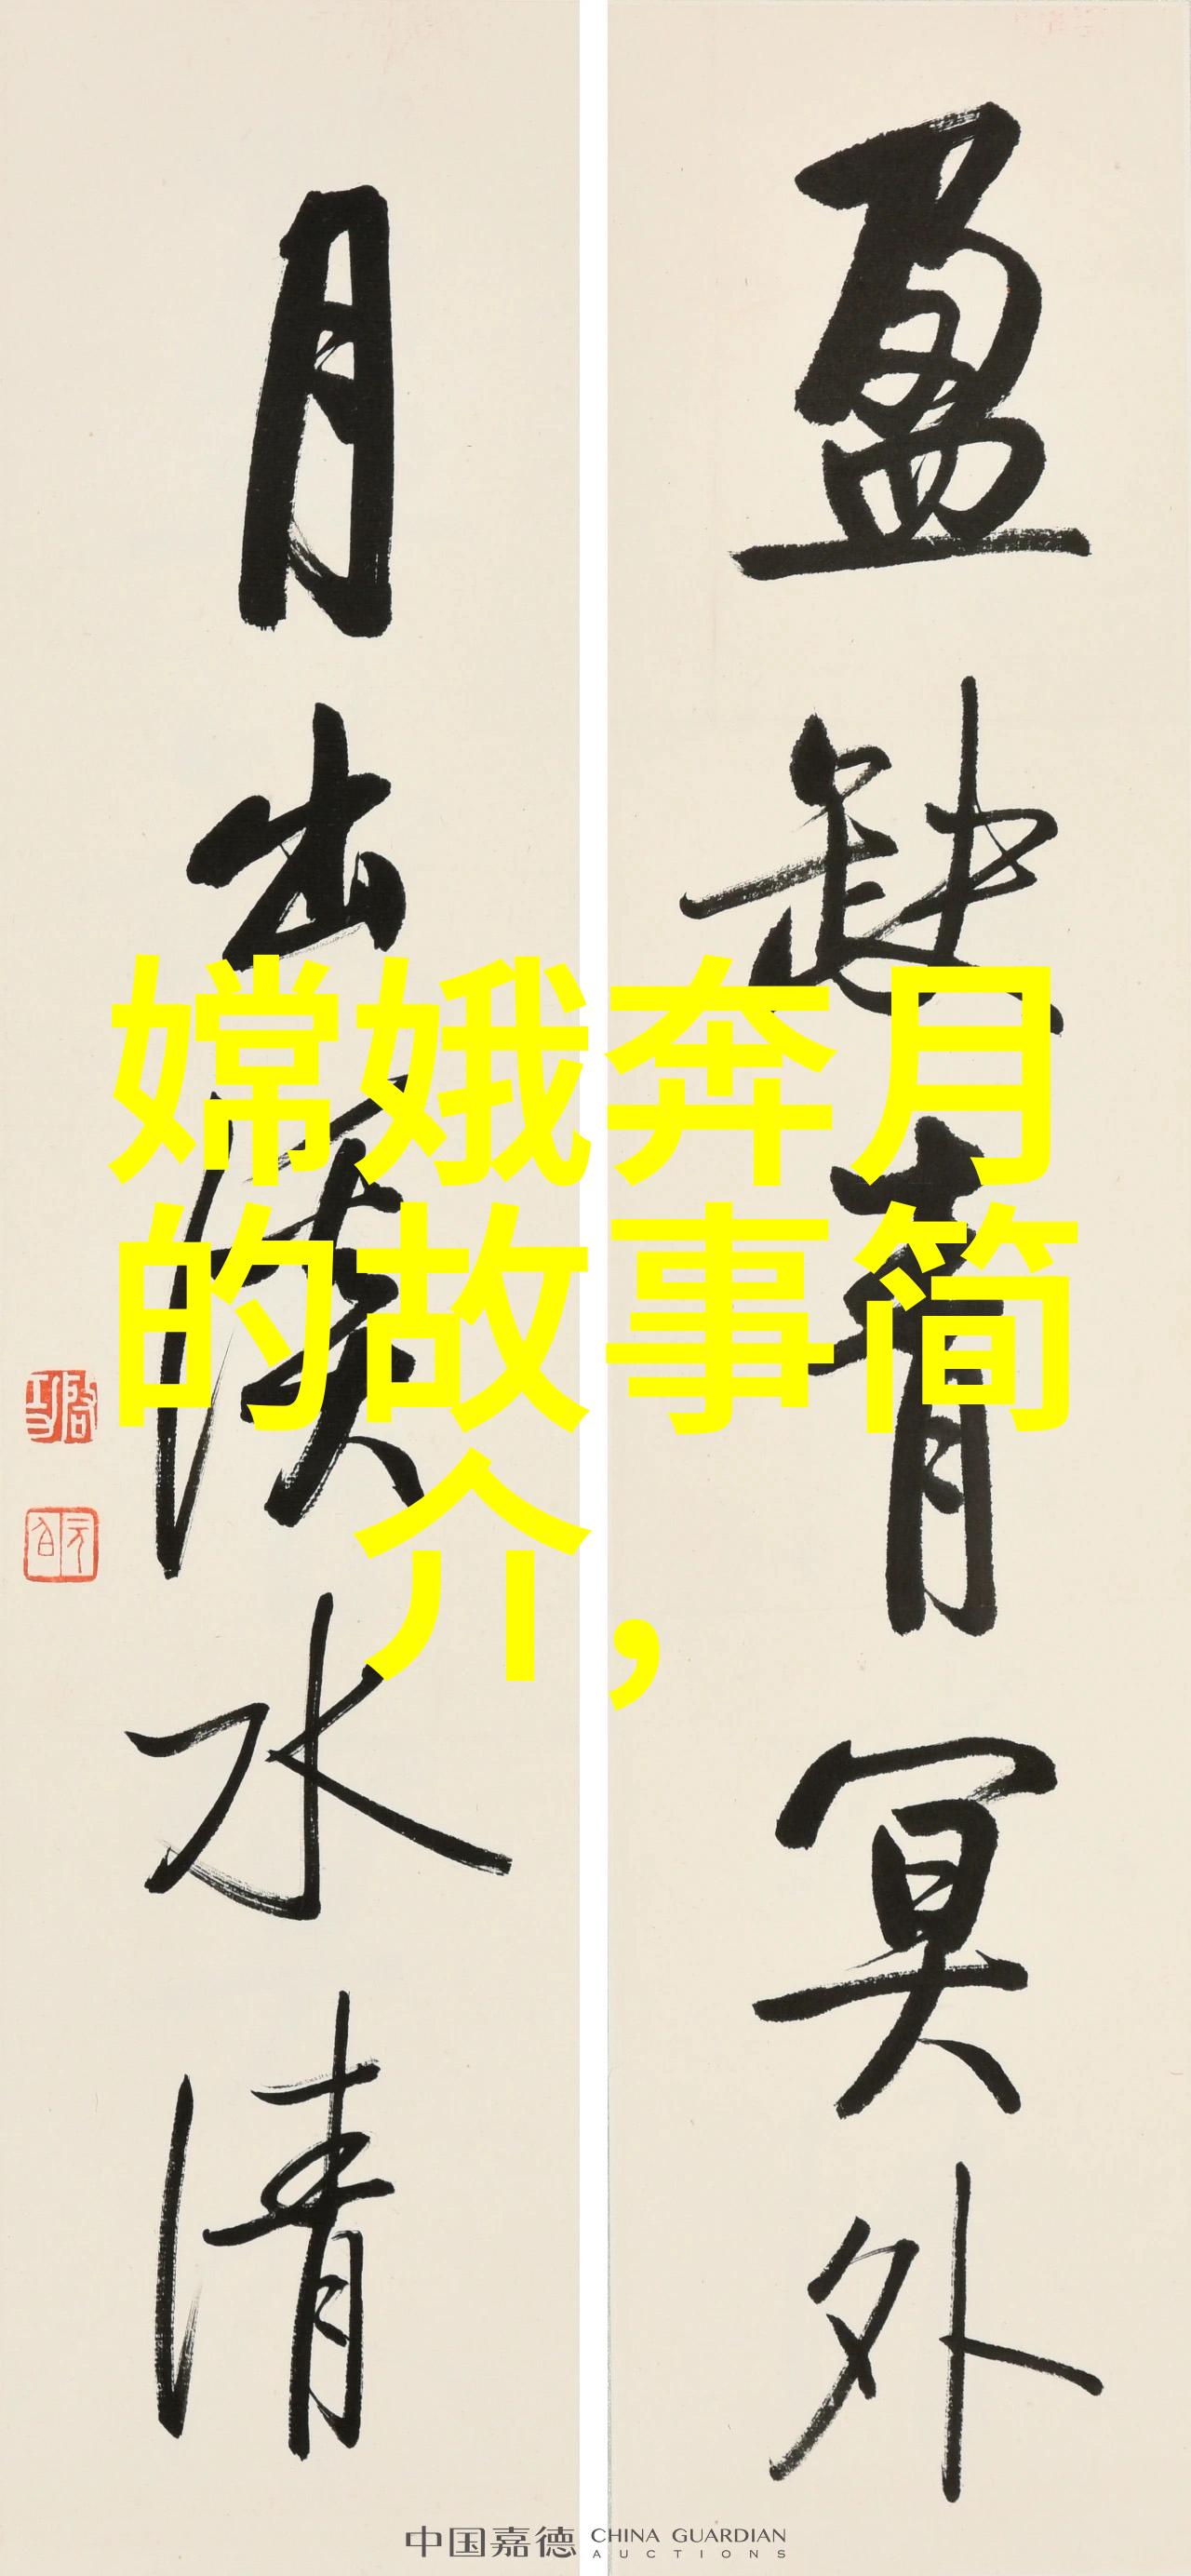 嫦娥奔月
的故事简
介，
盈缺青冥外
月出溪水清
啟功
元白
中国嘉德 CHINA GUARDIAN
AUCTIONS